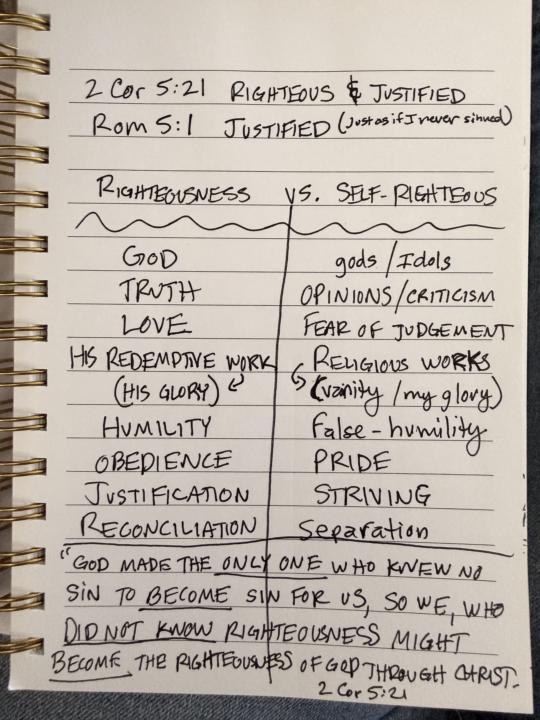 2 Cor 5:21 RIGHTEOUS & JUSTIFIED
Rom 5:1 JUSTIFIED (just as if I never sinned)
RIGHTEOUSNESS VS. SELF-RIGHTEOUS
GOD gods/Idols
TRUTH OPINIONS/CRITICISM
LOVE FEAR OF JUDGEMENT
HIS REDEMPTIVE WORK RELIGIOUS WORKS
(HIS GLORY) (vanity/my glory)
HUMILITY False-humility
OBEDIENCE PRIDE
JUSTIFICATION STRIVING
RECONCILIATION Separation
"GOD MADE THE ONLY ONE WHO KNEW NO
SIN TO BECOME SIN FOR US, SO WE, WHO
DID NOT KNOW RIGHTEOUSNESS MIGHT
BECOME THE RIGHTEOUSNESS OF GOD THROUGH CHRIST.
2 Cor 5:21